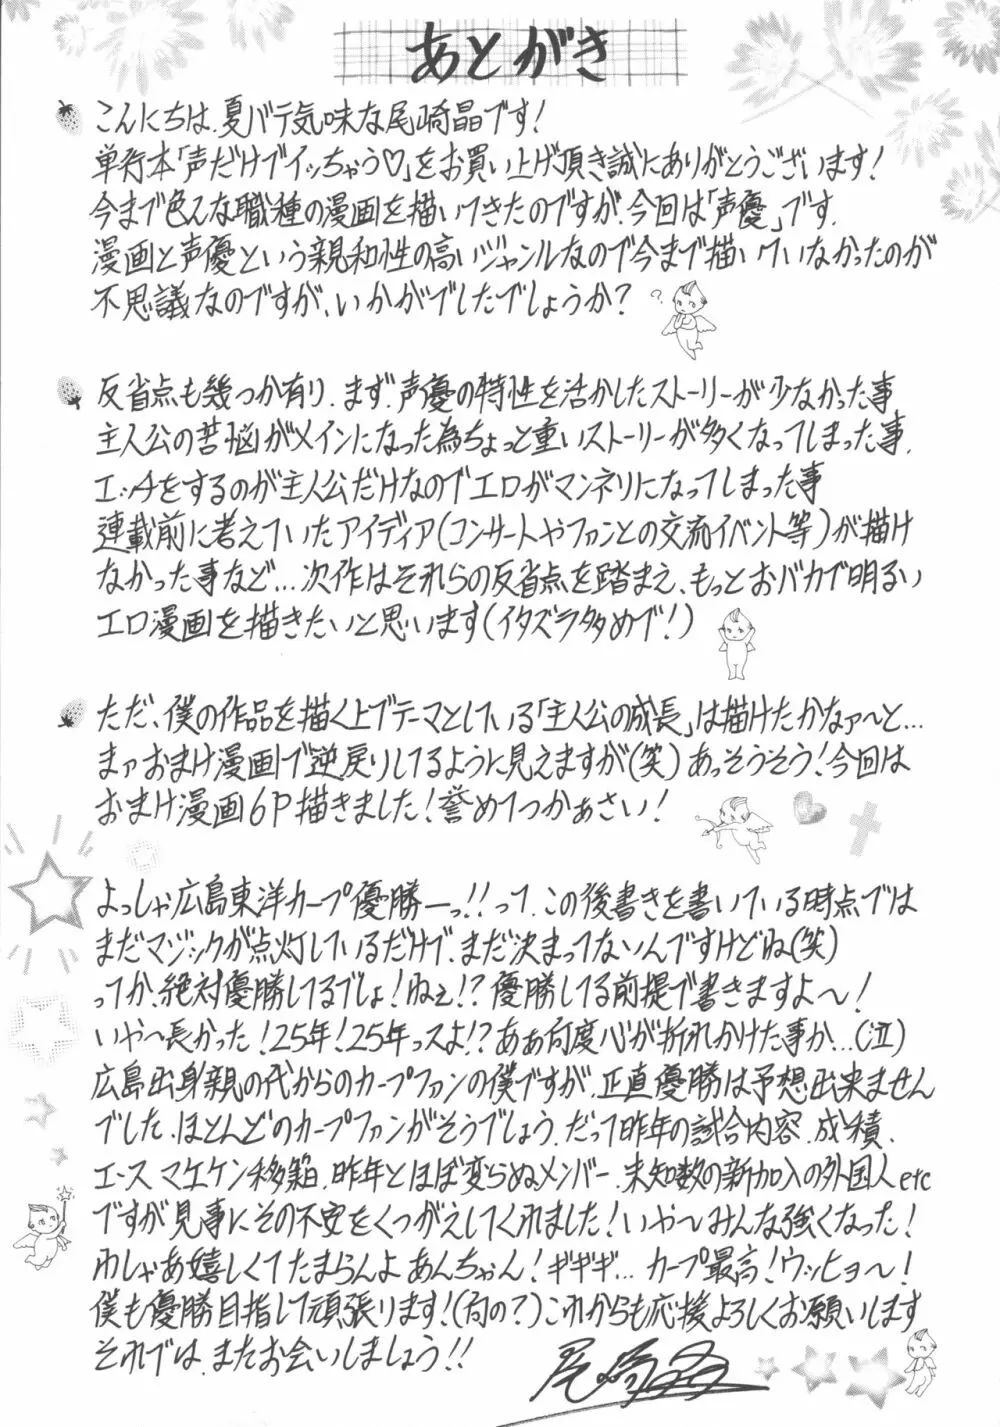 あとがき
こんにちは、夏バテ気味な尾崎晶です!
単行本「声だけでイッちゃう♡」をお買い上げ頂き誠にありがとうございます!
今まで色んな職種の漫画を描いてきたのですが、今回は「声優」です。
漫画と声優という親和性の高いジャンルなので今まで描いていなかったのが
不思議なのですが、いかがでしたでしょうか?
?
反省点も幾つか有り、まず、声優の特性を活かしたストーリーが少なかった事
主人公の苦悩がメインになった為ちょっと重いストーリーが多くなってしまった事、
エッチをするのが主人公だけなのでエロがマンネリになってしまった事
連載前に考えていたアイディア(コンサートやファンとの交流イベント等)が描け
なかった事など…次作はそれらの反省点を踏まえ、もっとおバカで明るい
エロ漫画を描きたいと思います(イタズラ多めで!)
ただ、僕の作品を描く上でテーマとしている「主人公の成長」は描けたかなァ〜と…
まァおまけ漫画で逆戻りしてるように見えますが(笑)あっそうそう!今回は
おまけ漫画6P描きました!誉めてつかぁさい!
よっしゃ広島東洋カープ優勝ーっ!!って、この後書きを書いている時点では
まだマジックが点灯しているだけで、まだ決まってないんですけどね(笑)
ってか、絶対優勝してるでしょ!ねぇ!?優勝してる前提で書きますよ〜!
いや〜長かった!25年!25年っスよ!?あぁ何度心が折れかけた事か…(泣)
広島出身親の代からのカープファンの僕ですが、正直優勝は予想出来ません
でした、ほとんどのカープファンがそうでしょう、だって昨年の試合内容、成績、
エース マエケン移籍、昨年とほぼ変らぬメンバー、未知数の新加入の外国人etc
ですが見事にその不安をくつがえしてくれました!いや〜みんな強くなった!
わしゃあ嬉しくてたまらんよあんちゃん!ギギギ… カープ最高!ウッヒョ〜!
僕も優勝目指して頑張ります!(何の?)これからも応援よろしくお願いします
それでは、またお会いしましょう!!
尾崎晶